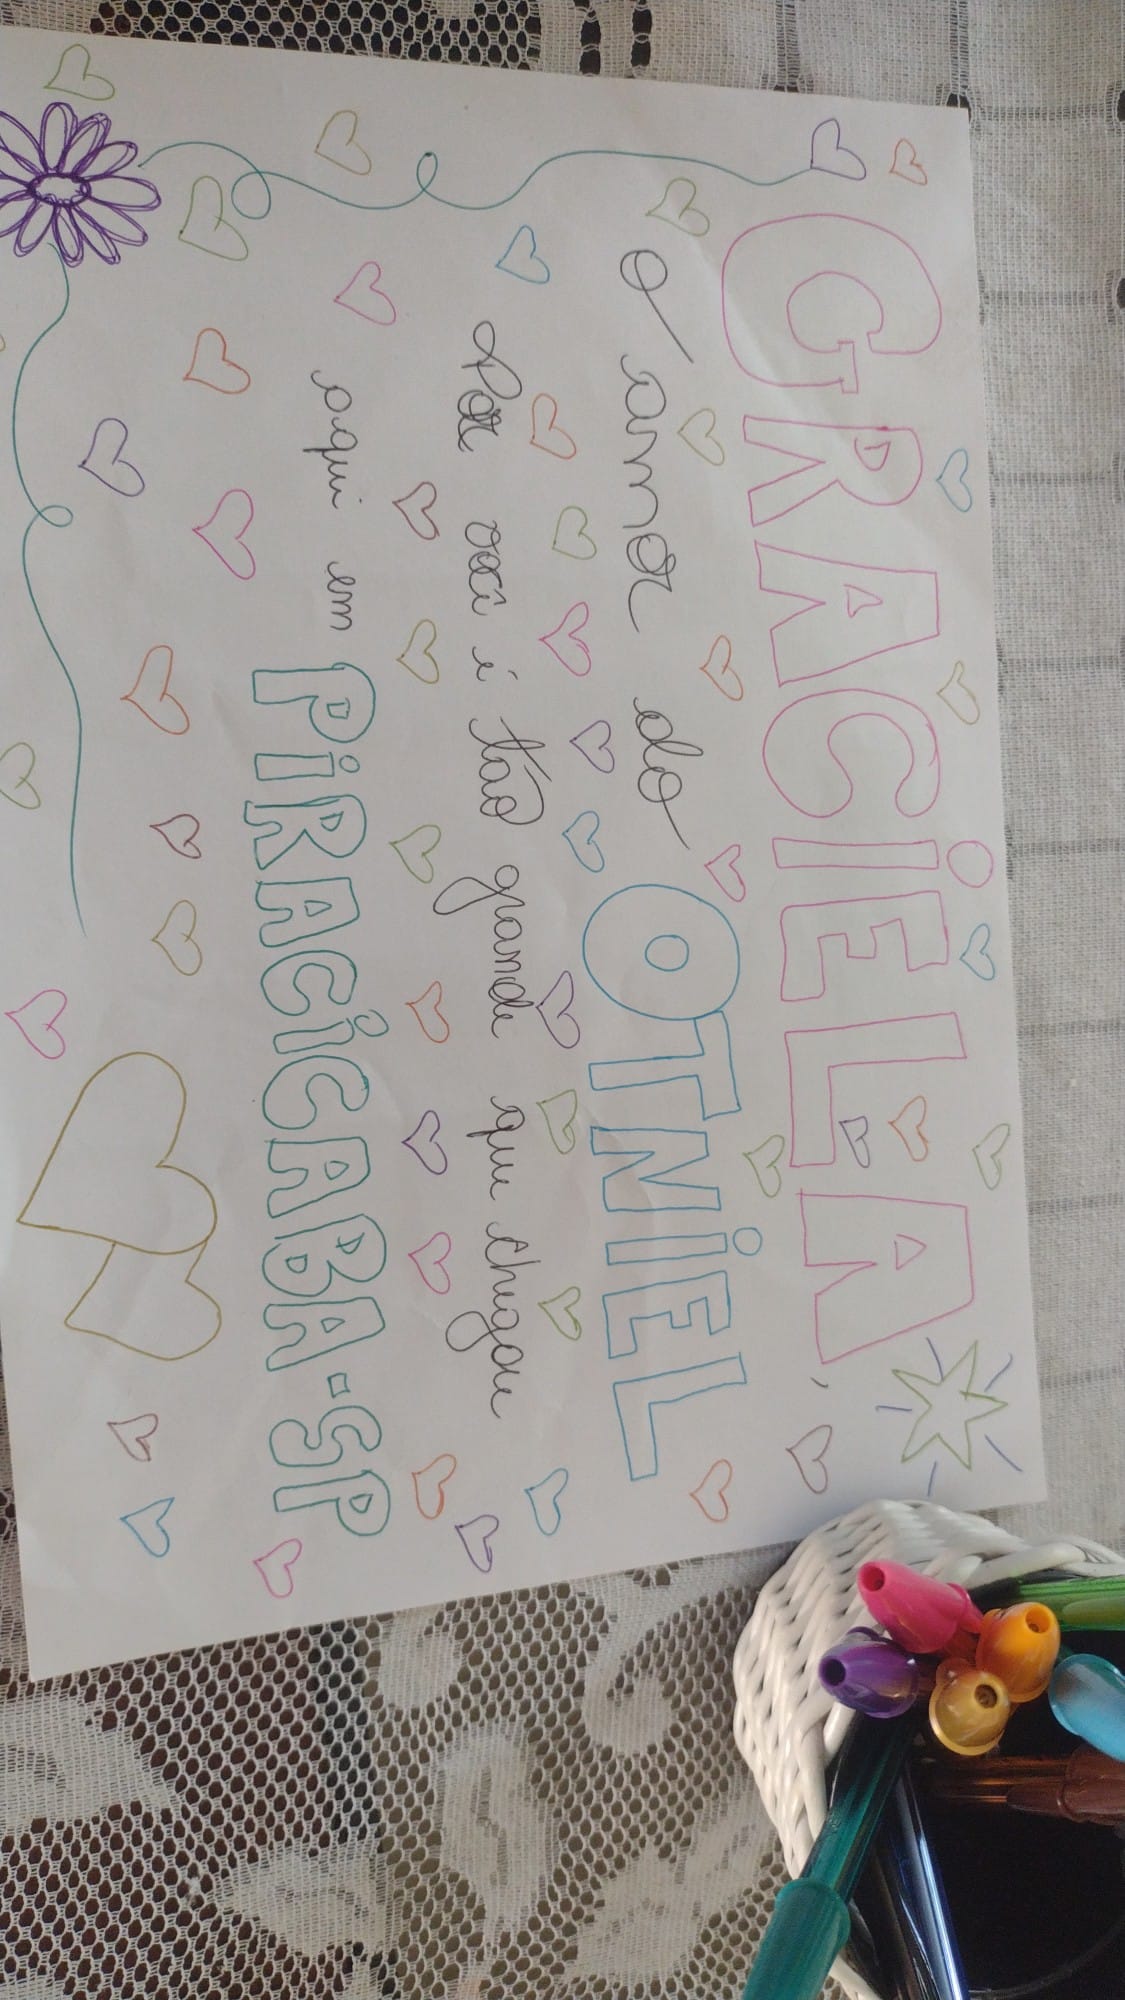 GRACIELA,
o amor do OTNIEL
Por você é tão grande que chegou
aqui em PIRACICABA-SP